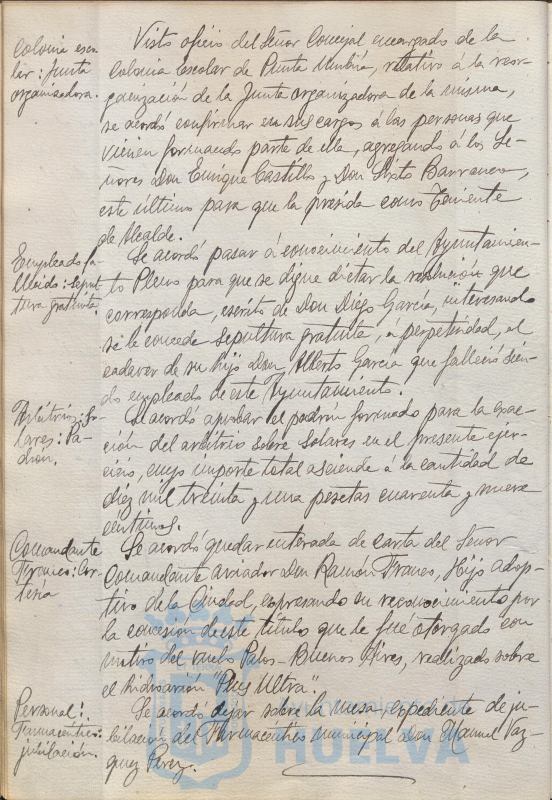 Colonia esco-
lar: Junta
organizadora.
Visto oficio del Señor Concejal encargado de la
Colonia Escolar de Punta Umbría, relativo á la reor-
ganización de la Junta organizadora de la misma,
se acordó confirmar en sus cargos á las personas que
vienen formando parte de ella, agregando á los Se-
ñores Don Enrique Castillo y Don Sixto Barranco,
este último para que la presida como Teniente
de Alcalde.
Empleado fa-
llecido: sepul-
tura gratuita.
Se acordó pasar á conocimiento del Ayuntamien-
to Pleno para que se digne dictar la resolución que
corresponda, escrito de Don Diego García, interesando
se le concede sepultura gratuita, á perpetuidad, al
cadaver de su hijo Don Alberto García que falleció sien-
do empleado de este Ayuntamiento.
Arbitrios: So-
lares: Pa-
dron.
Se acordó aprobar el padron formado para la exac-
ción del arbitrio sobre Solares en el presente ejer-
cicio, cuyo importe total asciende á la cantidad de
diez mil treinta y una pesetas cuarenta y nueve
centimos.
Comandante
Franco: Cor-
tesia
Se acordó quedar enterada de carta del Señor
Comandante aviador Don Ramón Franco, Hijo adop-
tivo de la Ciudad, expresando su reconocimiento por
la concesión de este título que le fué otorgado con
motivo del vuelo Palos-Buenos Aires, realizado sobre
el hidroavión "Plus Ultra".
Personal:
Farmacéutico:
jubilación.
Se acordó dejar sobre la mesa, expediente de ju-
bilación del Farmacéutico municipal Don Manuel Vaz-
quez Perez.
HUELVA